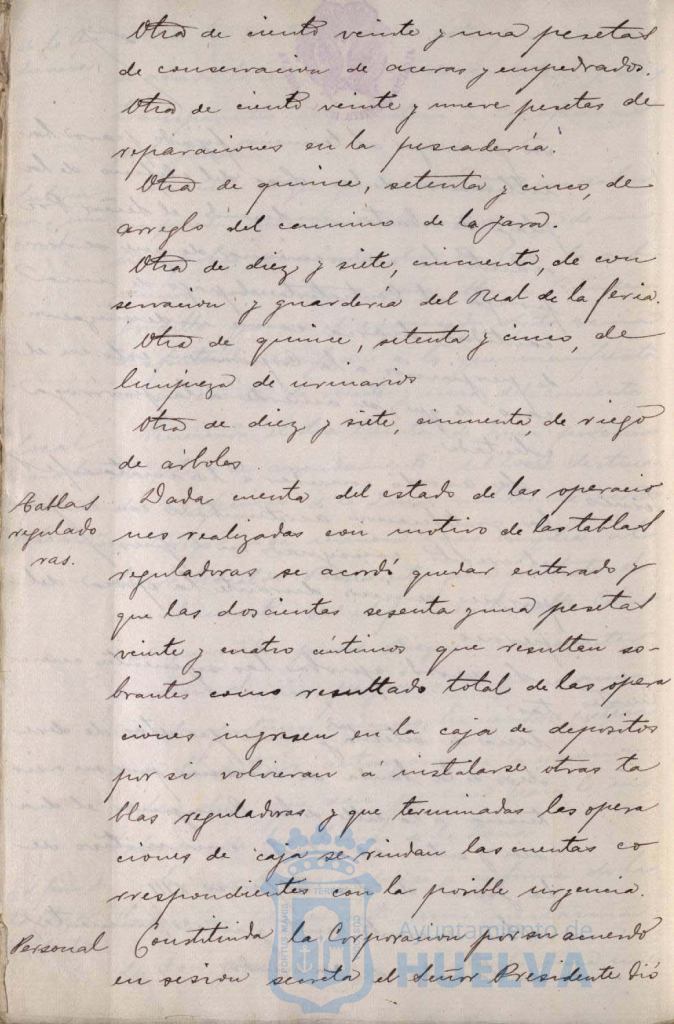 Otra de ciento veinte y una pesetas
de conservacion de aceras y empedrados.
Otra de ciento veinte y nueve pesetas de
reparaciones en la pescadería.
Otra de quince, setenta y cinco, de
arreglo del camino de la Jara.
Otra de diez y siete, cincuenta, de con
servacion y guardería del Real de la feria.
Otra de quince, setenta y cinco, de
limpieza de urinarios
Otra de diez y siete, cincuenta, de riego
de árboles.
Tablas
regulado
ras.
Dada cuenta del estado de las operacio
nes realizadas con motivo de las tablas
reguladoras se acordó quedar enterado y
que las doscientas sesenta y una pesetas
veinte y cuatro céntimos que resultan so-
brantes como resultado total de las opera
ciones ingresen en la caja de depósitos
por si volvieran á instalarse otras ta
blas reguladoras y que terminadas las opera
ciones de caja se rindan las cuentas co
rrespondientes con la posible urgencia.
Personal
Constituida la Corporacion por su acuerdo
en sesion secreta el Señor Presidente dió
Ayuntamiento de
HUELVA